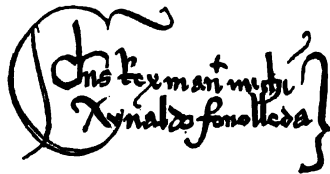 Dns Rex man̄ michi
Xynaldo fonolleda